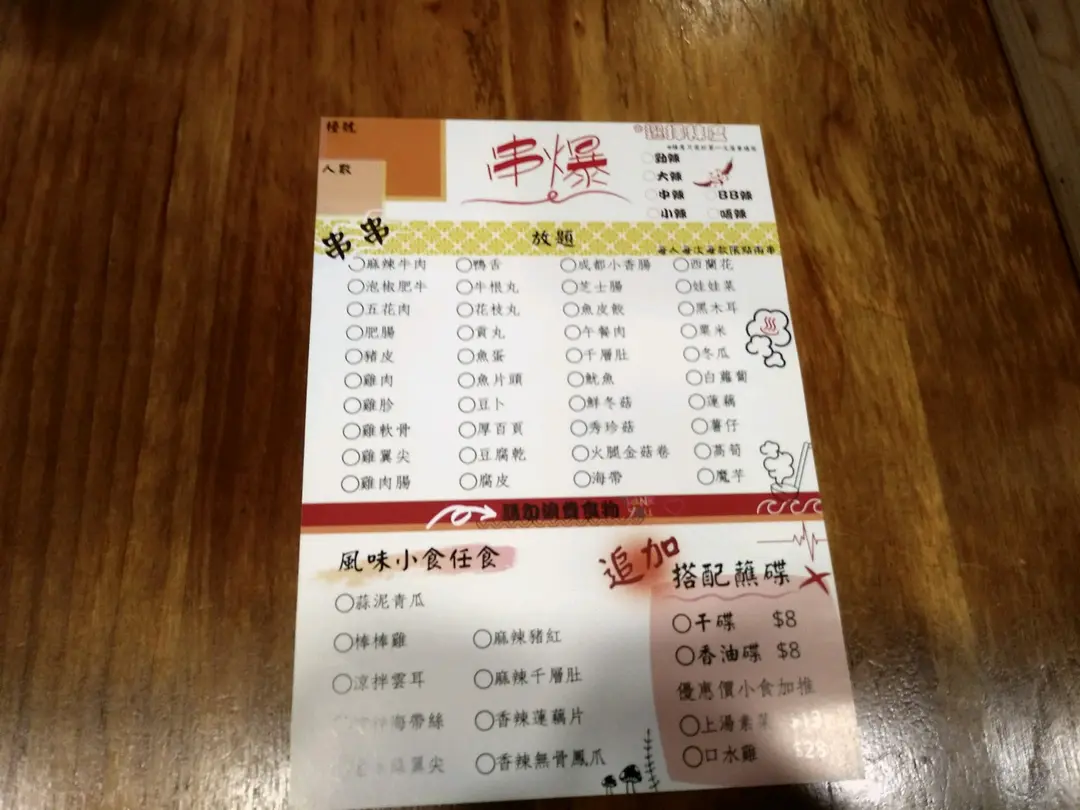 檯號
人數
串爆
選擇辣度
勁辣
大辣
中辣
BB辣
小辣
唔辣
串串
放題
每人每次每款限點兩串
麻辣牛肉
鴨舌
成都小香腸
西蘭花
泡椒肥牛
牛根丸
芝士腸
娃娃菜
五花肉
花枝丸
魚皮餃
黑木耳
肥腸
貢丸
午餐肉
粟米
豬皮
魚蛋
千層肚
冬瓜
雞肉
魚片頭
魷魚
白蘿蔔
雞胗
豆卜
鮮冬菇
蓮藕
雞軟骨
厚百頁
秀珍菇
薯仔
雞翼尖
豆腐乾
火腿金菇卷
萵筍
雞肉腸
腐皮
海帶
魔芋
請勿浪費食物
風味小食任食
蒜泥青瓜
棒棒雞
麻辣豬紅
涼拌雲耳
麻辣千層肚
海帶絲
香辣蓮藕片
翼尖
香辣無骨鳳爪
追加
搭配蘸碟
干碟 $8
香油碟 $8
優惠價小食加推
上湯素菜
口水雞 $28